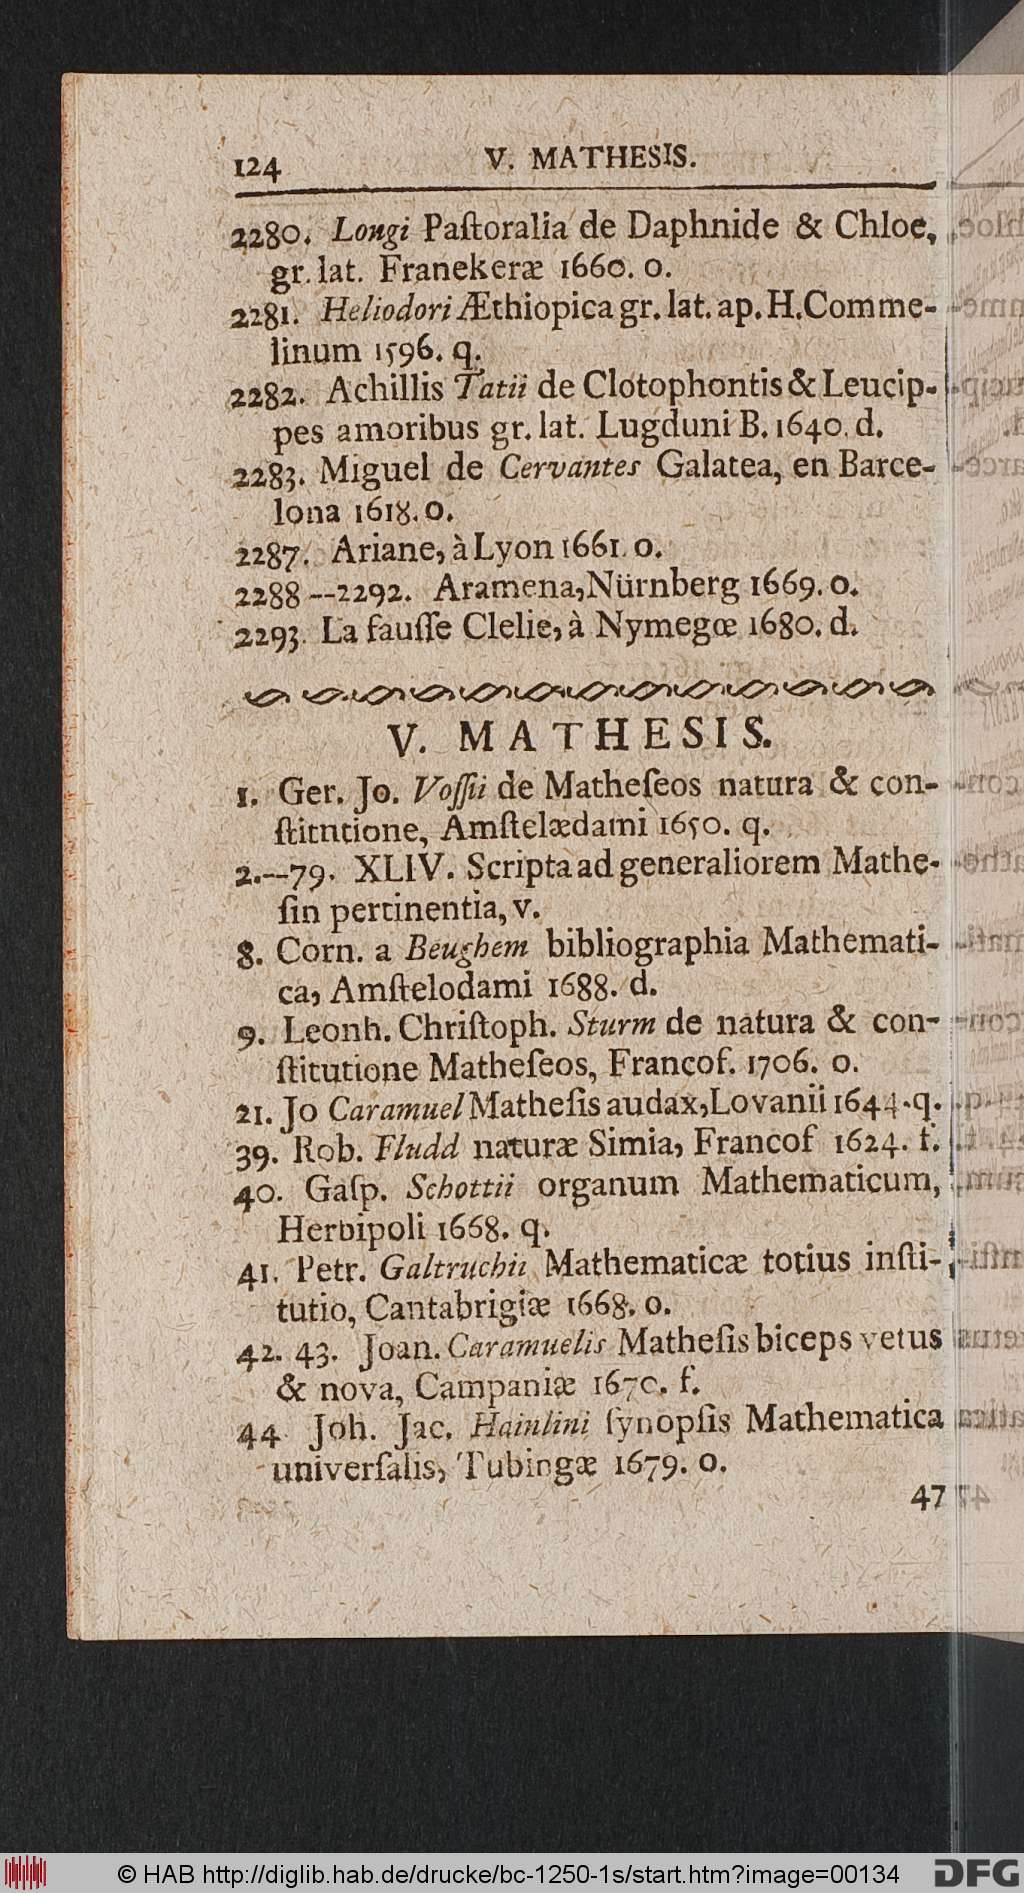 124 V. MATHESIS.
2280. Longi Paſtoralia de Daphnide & Chloe,
gr. lat. Franekeræ 1660. o.
2281. Heliodori Æthiopica gr. lat. ap. H. Comme-
linum 1596. q.
2282. Achillis Tatii de Clotophontis & Leucip-
pes amoribus gr. lat. Lugduni B. 1640. d.
2283. Miguel de Cervantes Galatea, en Barce-
lona 1618. o.
2287. Ariane, à Lyon 1661. o.
2288--2292. Aramena, Nürnberg 1669. o.
2293. La fauſſe Clelie, à Nymegœ 1680. d.
V. MATHESIS.
1. Ger. Jo. Voſſii de Matheſeos natura & con-
ſtitntione, Amſtelædami 1650. q.
2.--79. XLIV. Scripta ad generaliorem Mathe-
ſin pertinentia, v.
8. Corn. a Beughem bibliographia Mathemati-
ca, Amſtelodami 1688. d.
9. Leonh. Chriſtoph. Sturm de natura & con-
ſtitutione Matheſeos, Francof. 1706. o.
21. Jo Caramuel Matheſis audax, Lovanii 1644. q.
39. Rob. Fludd naturæ Simia, Francof 1624. f.
40. Gaſp. Schottii organum Mathematicum,
Herbipoli 1668. q.
41. Petr. Galtruchii Mathematicæ totius inſti-
tutio, Cantabrigiæ 1668. o.
42. 43. Joan. Caramuelis Matheſis biceps vetus
& nova, Campaniæ 1670. f.
44 Joh. Jac. Hainlini ſynopſis Mathematica
univerſalis, Tubingæ 1679. o.
47
© HAB http://diglib.hab.de/drucke/bc-1250-1s/start.htm?image=00134 DFG